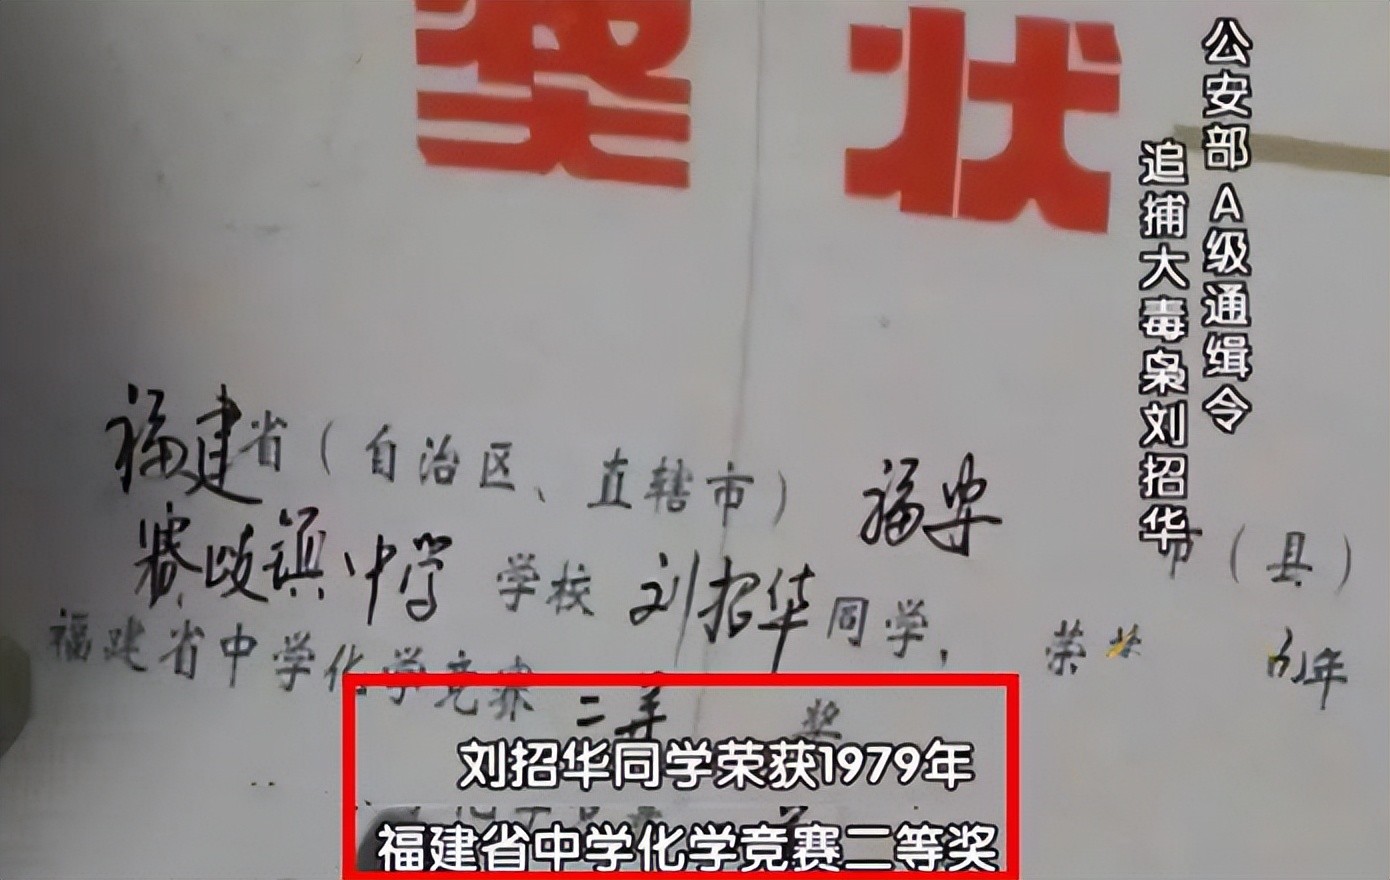 奖状
公安部A级通缉令
追捕大毒枭刘招华
福建省（自治区、直辖市）福安市（县）
赛岐镇中学学校刘招华同学，荣获年
福建省中学化学竞赛二等奖
刘招华同学荣获1979年
福建省中学化学竞赛二等奖